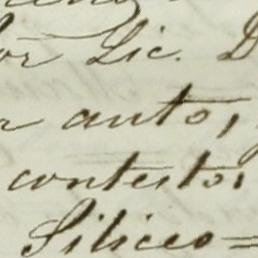 or Lic. D
r auto,
contesto:
Siliceo=